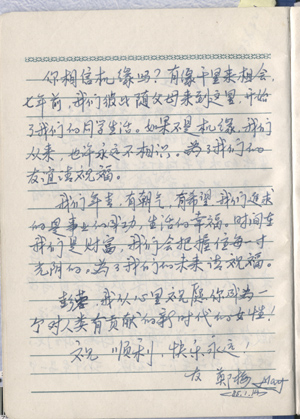 你相信机缘吗？有缘千里来相会，
七年前，我们彼此随父母来到这里，开始
了我们的同学生活。如果不是机缘，我们
从来，也许永远不相识。为了我们的
友谊请祝福。
我们年青，有朝气，有希望，我们追求
的是事业的成功，生活的幸福，时间在
我们是财富，我们会把握住每一寸
光阴的，为了我们的未来请祝福。
我从心里祝愿你成为一
个对人类有贡献的新时代的女性！
祝 顺利，快乐永远！
友 郑梅